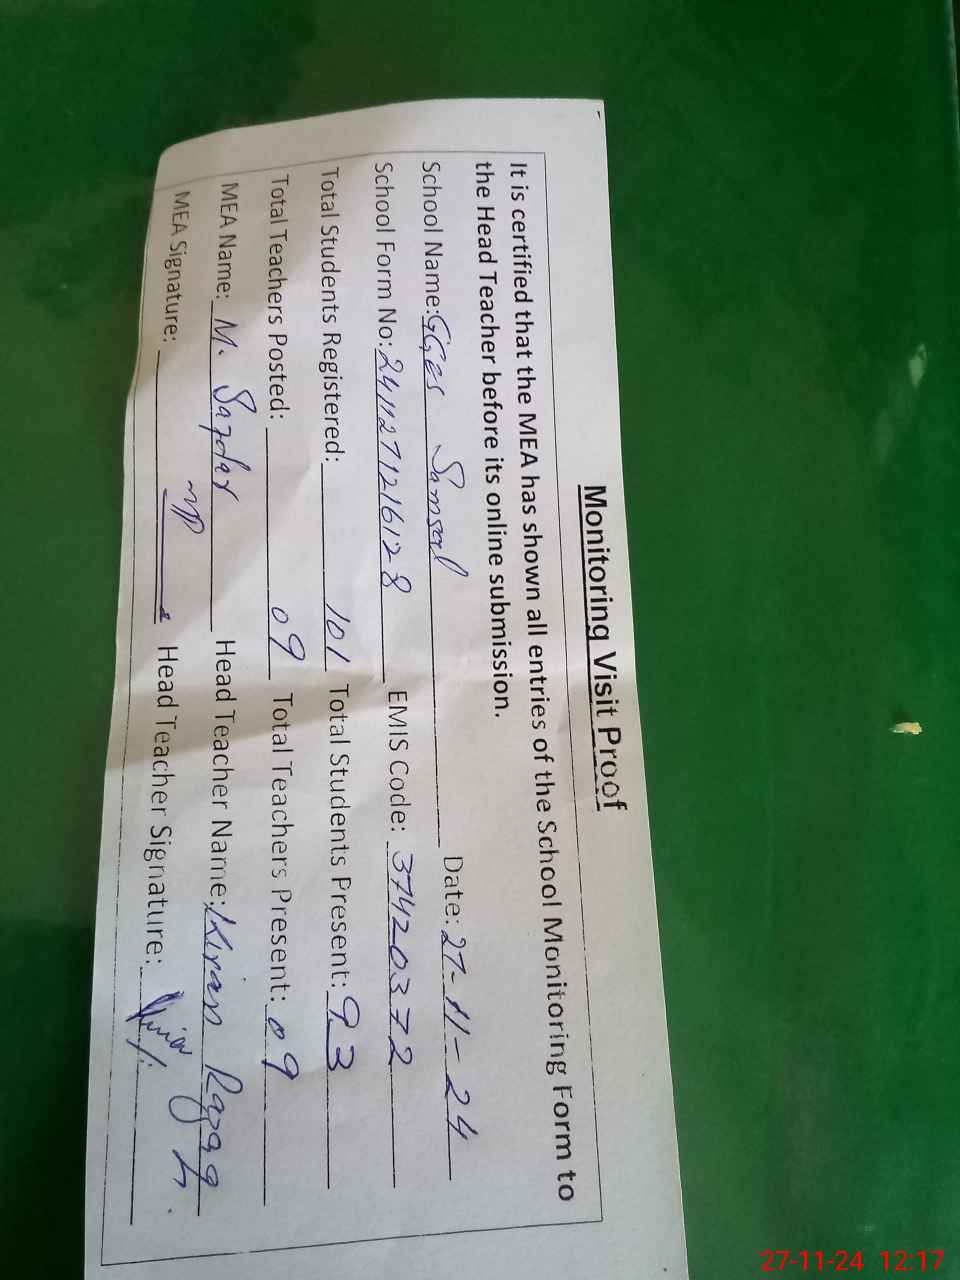 Monitoring Visit Proof
It is certified that the MEA has shown all entries of the School Monitoring Form to
the Head Teacher before its online submission.
School Name: GGES Samsal Date: 27-11-24
School Form No: 241127121612 8 EMIS Code: 37420372
Total Students Registered: 101 Total Students Present: 93
Total Teachers Posted: 09 Total Teachers Present: 09
MEA Name: M. Safdar Head Teacher Name: Kiran
MEA Signature: Head Teacher Signature:
27-11-24 12:17